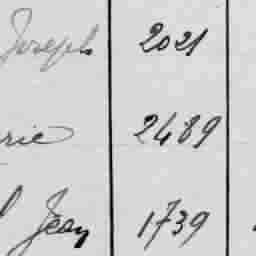 Joseph 2021
rie 2489
Jean 1739